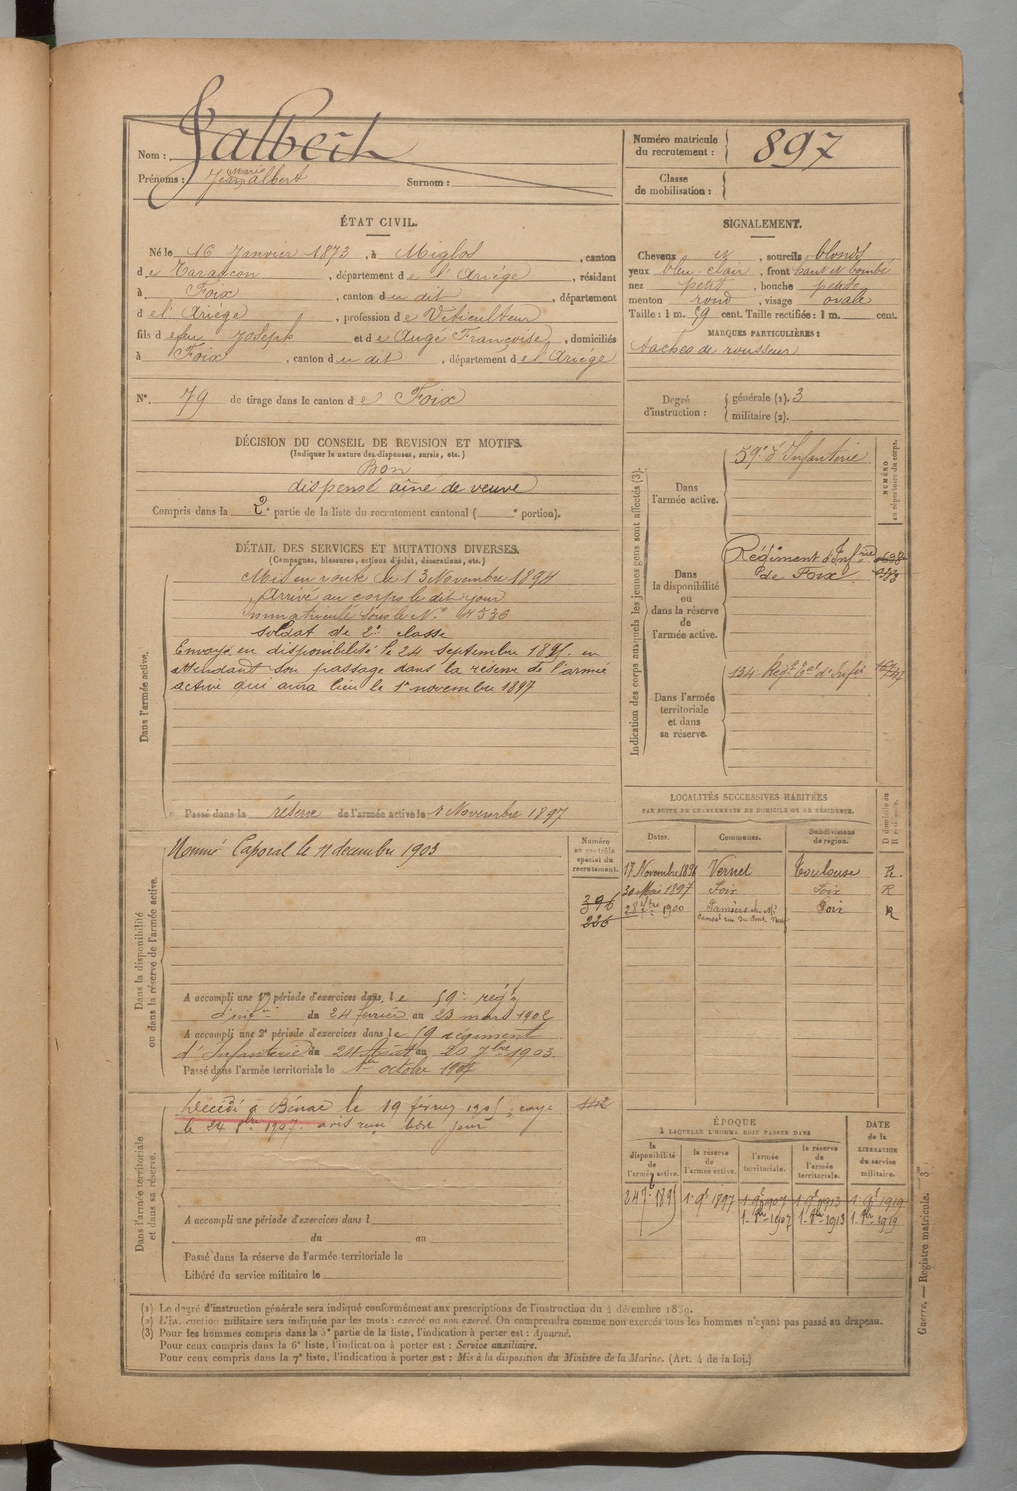 Nom : Galbert
Prénoms : Jean Marie Albert Surnom :
Numéro matricule du recrutement : 897
Classe de mobilisation :
ÉTAT CIVIL.
Né le 16 Janvier 1873, à Miglos, canton
de Tarascon, département de l'Ariége, résidant
à Foix, canton du dit, département
de l'Ariége, profession de Viticulteur
fils de feu Joseph et de Augé Françoise, domiciliés
à Foix, canton du dit, département de l'Ariége
N° 79 de tirage dans le canton de Foix
SIGNALEMENT.
Cheveux et, sourcils blonds
yeux bleu-clair, front haut et bombé
nez petit, bouche petite
menton rond, visage ovale
Taille : 1 m. 59 cent. Taille rectifiée : 1 m. cent.
MARQUES PARTICULIÈRES :
taches de rousseur
Degré d'instruction : générale (1). 3
militaire (2).
DÉCISION DU CONSEIL DE REVISION ET MOTIFS.
(Indiquer la nature des dispenses, sursis, etc.)
Bon
dispensé aîné de veuve
Compris dans la 2e partie de la liste du recrutement cantonal ( e portion).
DÉTAIL DES SERVICES ET MUTATIONS DIVERSES.
(Campagnes, blessures, actions d'éclat, décorations, etc.)
Dans l'armée active.
Mis en route le 13 Novembre 1894
Arrivé au corps le dit jour
immatriculé sous le N° 4536
soldat de 2e classe
Envoyé en disponibilité le 24 septembre 1895 en
attendant son passage dans la réserve de l'armée
active qui aura lieu le 1er novembre 1897
Passé dans la réserve de l'armée active le 1 Novembre 1897
Indication des corps auxquels les jeunes gens sont affectés (3).
NUMÉRO au répertoire du corps.
Dans l'armée active.
59e d'Infanterie
Dans la disponibilité ou dans la réserve de l'armée active.
Régiment d'Infrie
de Foix
Dans l'armée territoriale et dans sa réserve.
134 Regt Eal d'Infie
LOCALITÉS SUCCESSIVES HABITÉES
PAR SUITE DE CHANGEMENTS DE DOMICILE OU DE RÉSIDENCE.
Dates. Communes. Subdivisions de région. D domicile ou R résidence.
17 Novembre 1896 Vernet Toulouse R.
30 Mai 1897 Foix Foix R
28 1900 Pamiers Foix R
Dans la disponibilité ou dans la réserve de l'armée active.
Numéro au contrôle spécial du recrutement.
Nommé Caporal le 11 decembre 1903
396
226
A accompli une 1re période d'exercices dans le 59e regt
d'infie du 24 février au 23 mars 1902
A accompli une 2e période d'exercices dans le 59 régiment
d'Infanterie du 24 Août au 20 7bre 1903.
Passé dans l'armée territoriale le 1er octobre 1907
Dans l'armée territoriale et dans sa réserve.
Décédé à Bénac le 19 février 1905; rayé
le 24 8bre 1907. avis reçu le dit jour
A accompli une période d'exercices dans l
du au
Passé dans la réserve de l'armée territoriale le
Libéré du service militaire le
ÉPOQUE
À LAQUELLE L'HOMME DOIT PASSER DANS
la disponibilité de l'armée active. la réserve de l'armée active. l'armée territoriale. la réserve de l'armée territoriale. DATE de la LIBÉRATION du service militaire.
24 7b 1895 1. 9b 1897 1 9b 1907 1 9b 1913 1 9b 1919
1. 8bre 1907 1. 8bre 1913 1. 8bre 1919
(1) Le degré d'instruction générale sera indiqué conformément aux prescriptions de l'instruction du 4 décembre 1889.
(2) L'instruction militaire sera indiquée par les mots : exercé ou non exercé. On comprendra comme non exercés tous les hommes n'ayant pas passé au drapeau.
(3) Pour les hommes compris dans la 5e partie de la liste, l'indication à porter est : Ajourné.
Pour ceux compris dans la 6e liste, l'indication à porter est : Service auxiliaire.
Pour ceux compris dans la 7e liste, l'indication à porter est : Mis à la disposition du Ministre de la Marine. (Art. 4 de la loi.)
Guerre. — Registre matricule. — 3